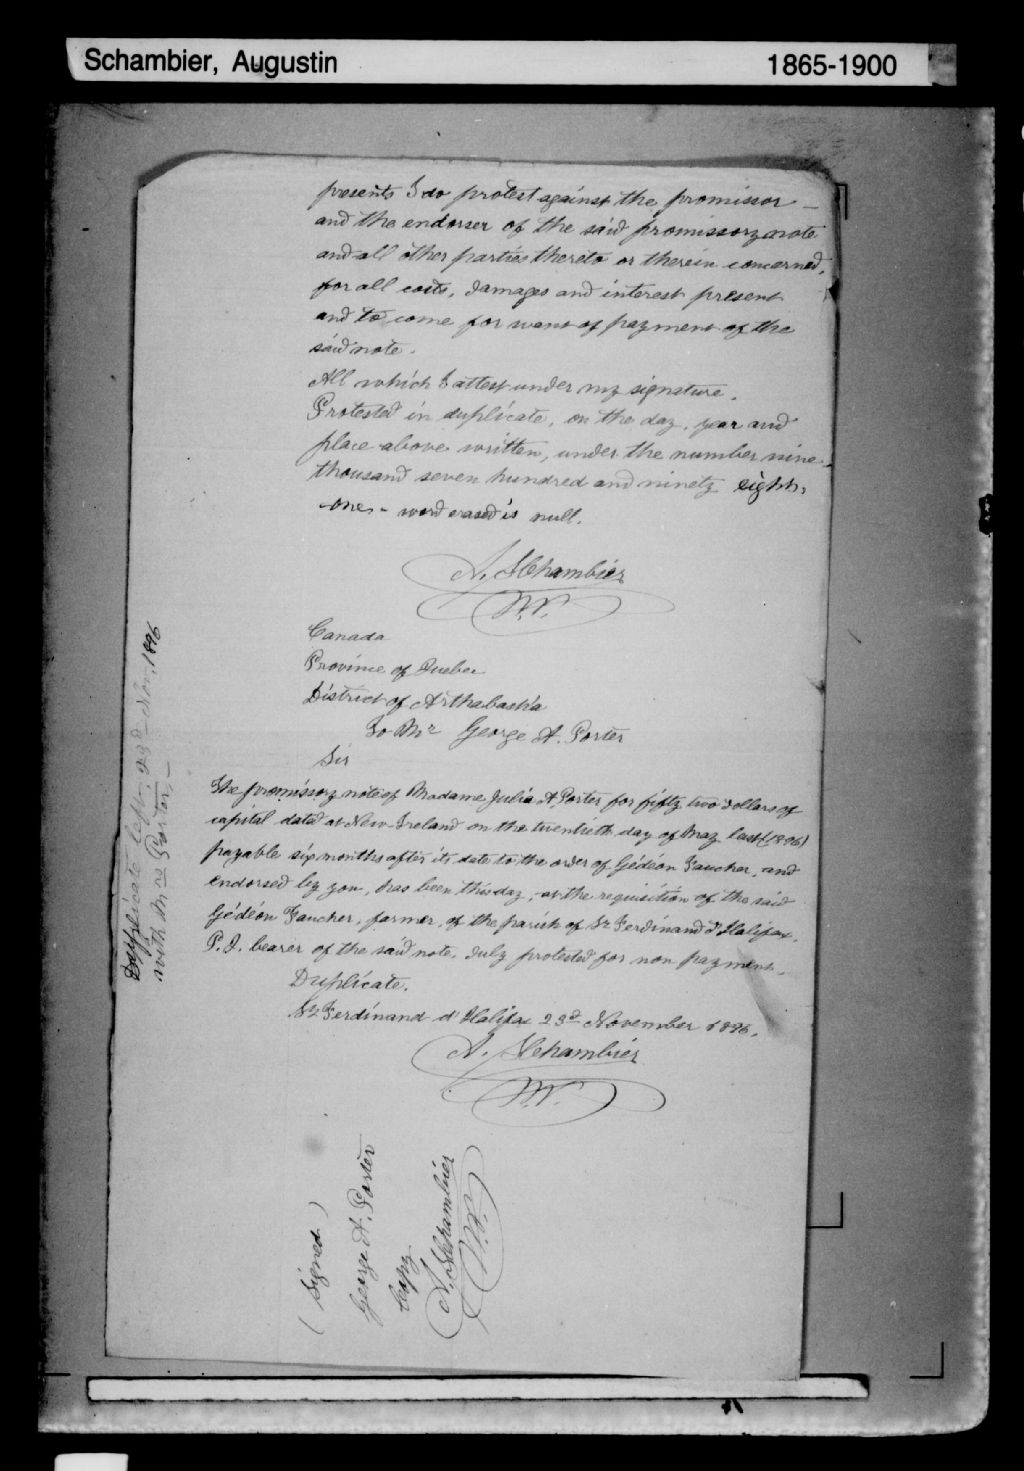 Schambier, Augustin 1865-1900
presents I do protest against the promissor –
and the endorser of the said promissory note
and all other parties thereto or therein concerned,
for all costs, damages and interest present
and to come for want of payment of the
said note.
All which I attest under my signature.
Protested in duplicate, on the day, year and
place above written, under the number nine
thousand seven hundred and ninety eight.
one - word erased is null.
A. Schambier
N.P.
Canada
Province of Quebec
District of Arthabaska
To Mr George A. Porter
Sir
The promissory note of Madame Julia A. Porter for fifty two dollars of
capital dated at New-Ireland on the twentieth day of May last (1896)
payable six months after its date to the order of Gédéon Faucher, and
endorsed by you, has been this day, at the requisition of the said
Gédéon Faucher, farmer, of the parish of St Ferdinand d'Halifax,
P. Q. bearer of the said note, duly protested for non payment.
Duplicate.
St Ferdinand d'Halifax 23d November 1896.
A. Schambier
N.P.
Duplicate left 23d Nov. 1896
with Mr Porter. –
(Signed)
George A. Porter
Copy
A. Schambier
N.P.